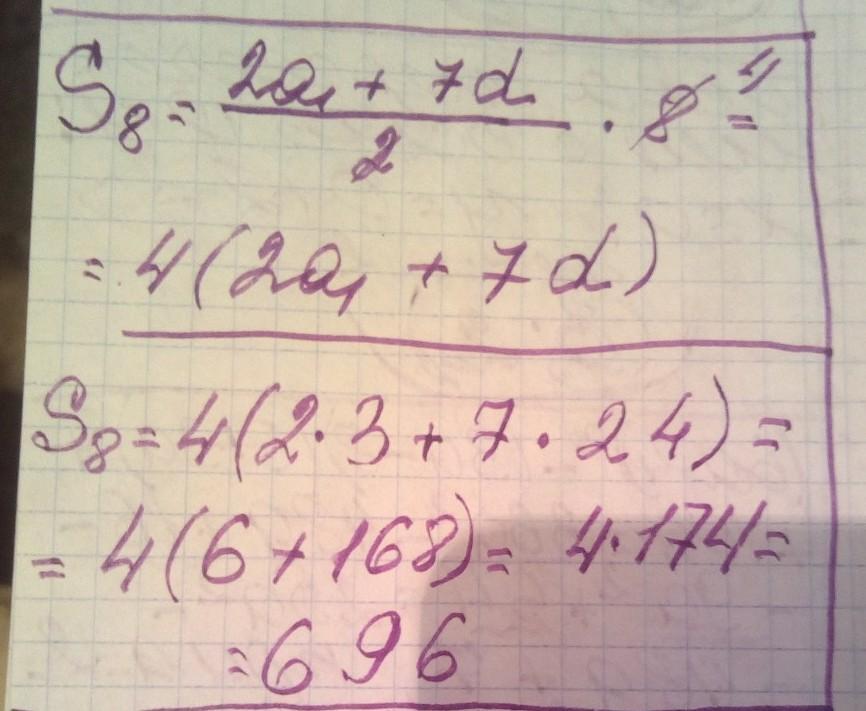 S₈ = (2a₁ + 7d)/2 · 8 ⁴ =
= 4(2a₁ + 7d)
S₈ = 4(2·3 + 7·24) =
= 4(6 + 168) = 4·174 =
= 696